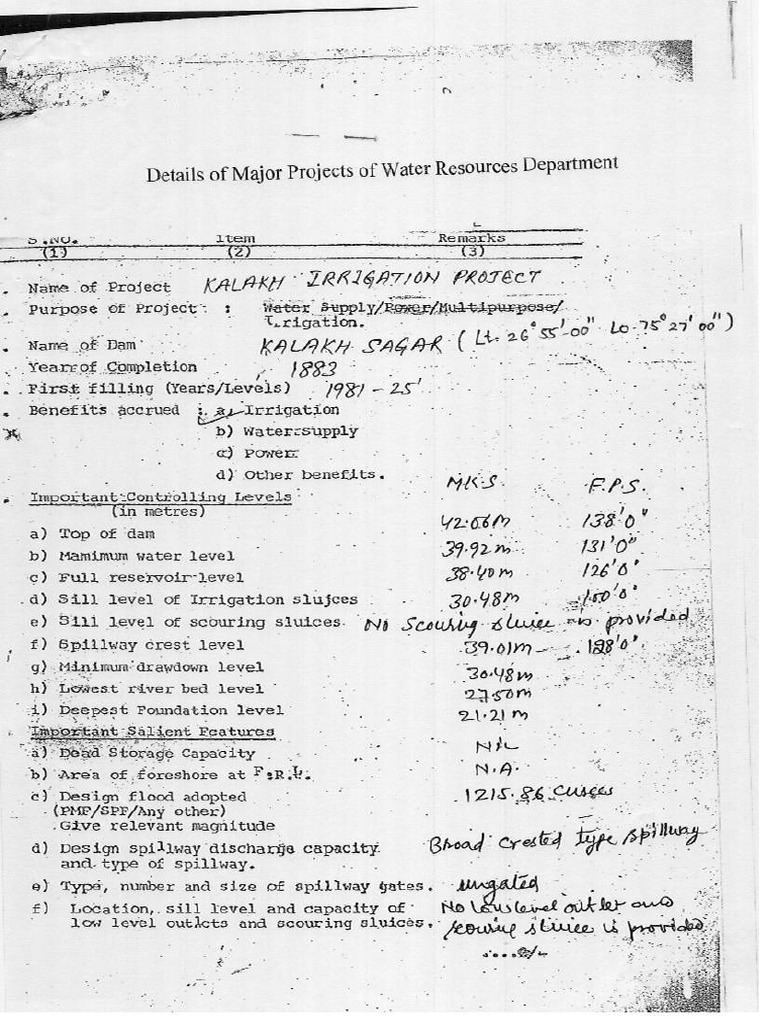 Details of Major Projects of Water Resources Department
S.NO. Item Remarks
(1) (2) (3)
Name of Project KALAKH IRRIGATION PROJECT
Purpose of Project : Water Supply/Power/Multipurpose/
Irrigation.
Name of Dam KALAKH SAGAR (Lt. 26°55'-00" Lo-75°27'00")
Year of Completion 1883
First filling (Years/Levels) 1981 - 25'
Benefits accrued : a) Irrigation
b) Water supply
c) Power
d) Other benefits.
Important Controlling Levels M.K.S F.P.S.
(in metres)
a) Top of dam 42.06m 138'0"
b) Mamimum water level 39.92m 131'0"
c) Full reservoir level 38.40m 126'0"
d) Sill level of Irrigation slujces 30.48m 100'0"
e) Sill level of scouring sluices. No Scouring sluice is provided
f) Spillway crest level 39.01m 128'0"
g) Minimum drawdown level 30.48m
h) Lowest river bed level 27.50m
i) Deepest Foundation level 21.21m
Important Salient Features
a) Dead Storage Capacity NIL
b) Area of foreshore at F.R.L. N.A.
c) Design flood adopted 1215.86 Cusecs
(PMF/SPF/Any other)
Give relevant magnitude
d) Design spillway discharge capacity Broad crested type spillway
and type of spillway.
e) Type, number and size of spillway gates. ungated
f) Location, sill level and capacity of No low level outlet and
low level outlets and scouring sluices. scouring sluice is provided